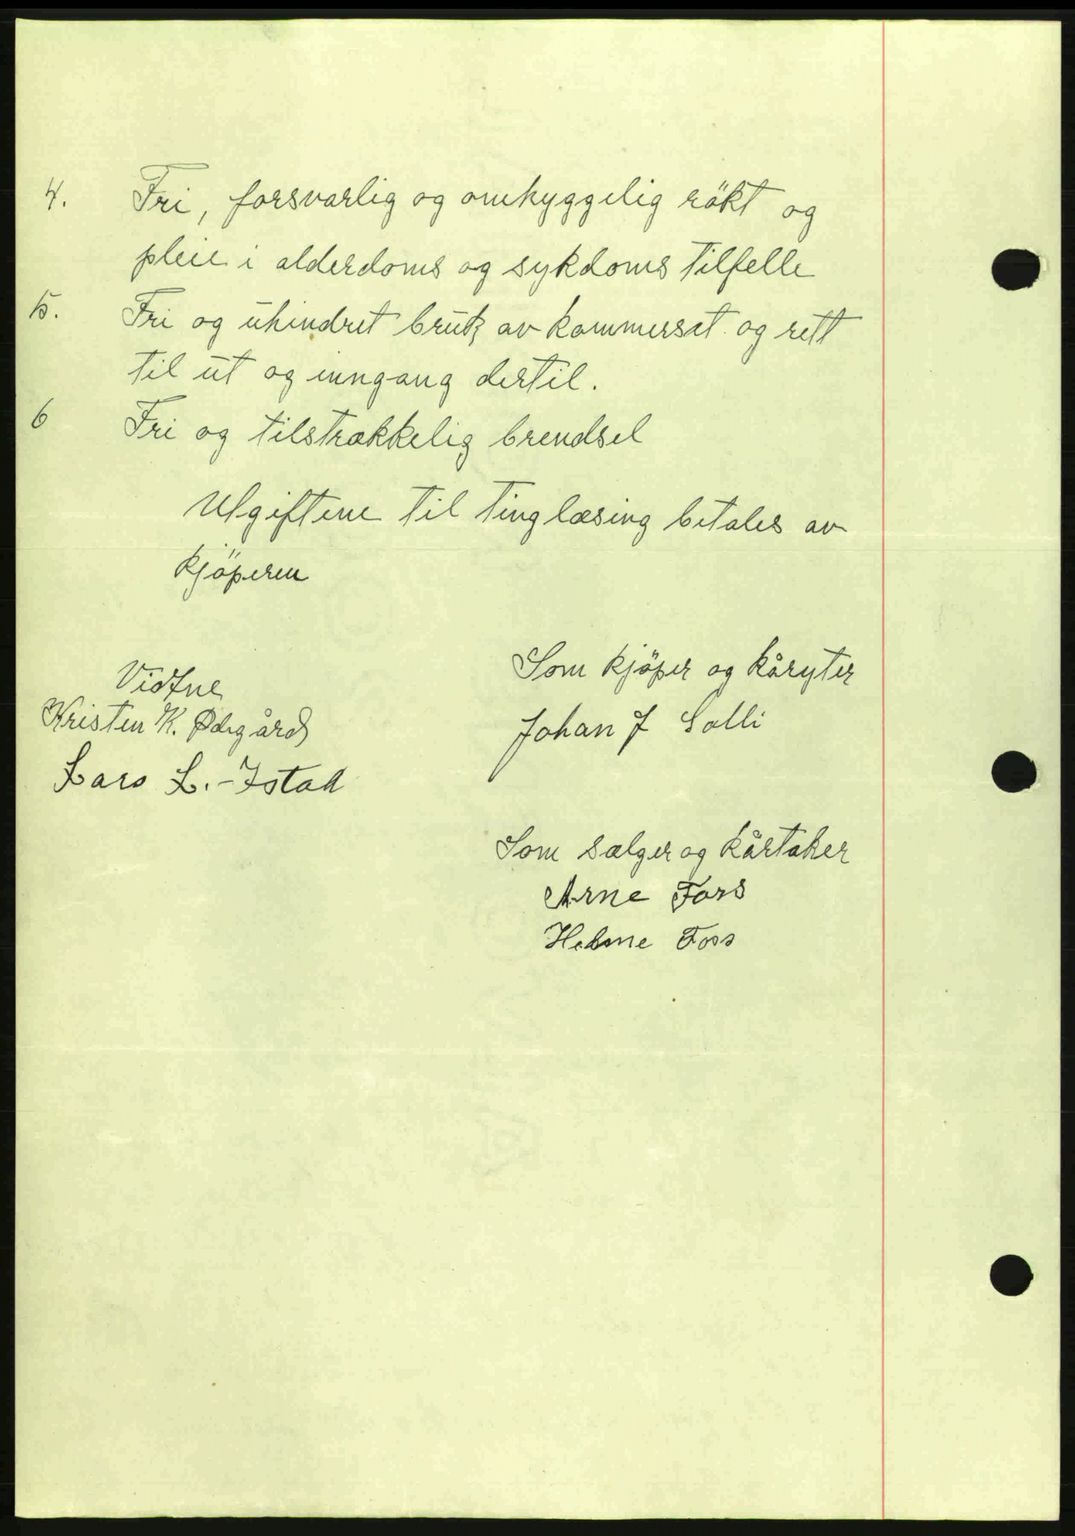 4. Fri, forsvarlig og omhyggelig rökt og
pleie i alderdoms og sykdoms tilfelle
5. Fri og uhindret bruk av kammerset og rett
til ut og inngang dertil.
6 Fri og tilstrækkelig brendsel
Utgiftene til tinglæsing betales av
kjöperen
Vidne
Kristen K. Ødegård
Lars L. Istad
Som kjöper og kåryter
Johan J Solli
Som sælger og kårtaker
Arne Fors
Foss